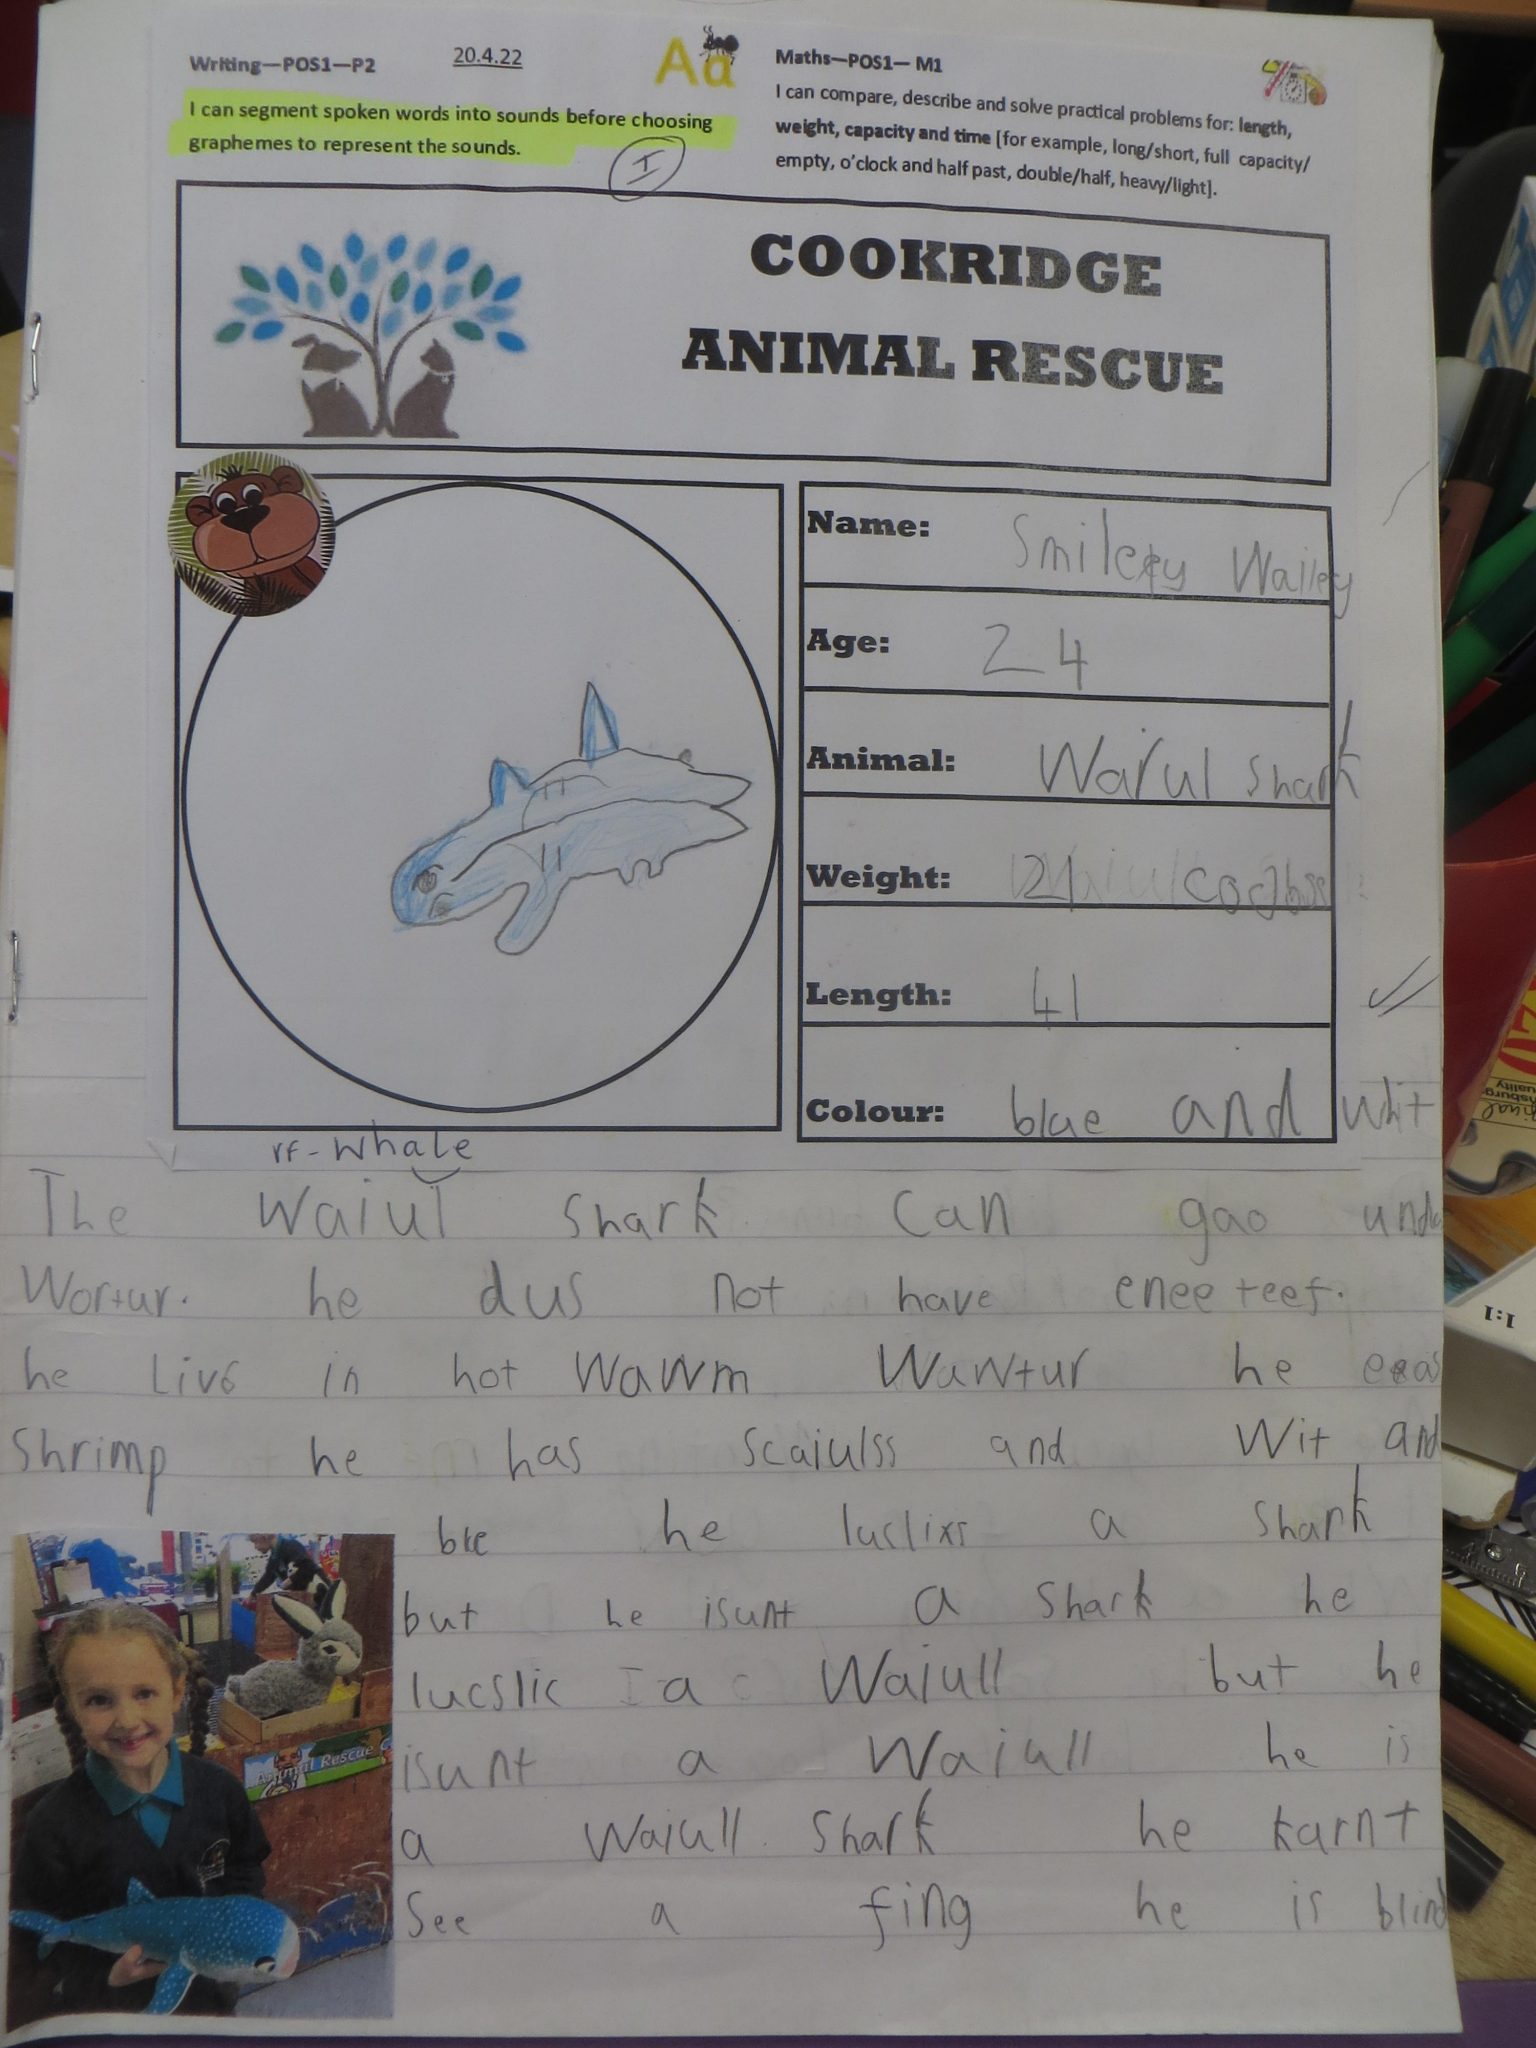 Writing—POS1—P2
20.4.22
Aa
I can segment spoken words into sounds before choosing
graphemes to represent the sounds.
I
Maths—POS1— M1
I can compare, describe and solve practical problems for: length,
weight, capacity and time [for example, long/short, full capacity/
empty, o'clock and half past, double/half, heavy/light].
COOKRIDGE
ANIMAL RESCUE
Name: Smiley Wailey
Age: 24
Animal: Waiul shark
Weight: 21
Length: 41
Colour: blue and whit
rf - whale
The Waiul shark can gao unda
Wortur. he dus not have enee teef.
he livs in hot wawm wawtur he
Shrimp he has scaiulss and wit and
ble he luclixs a shark
but he isunt a shark he
lucslic a Waiull but he
isunt a Waiull he is
a Waiull shark he karnt
See a fing he is blind
Animal Rescue C
1:1